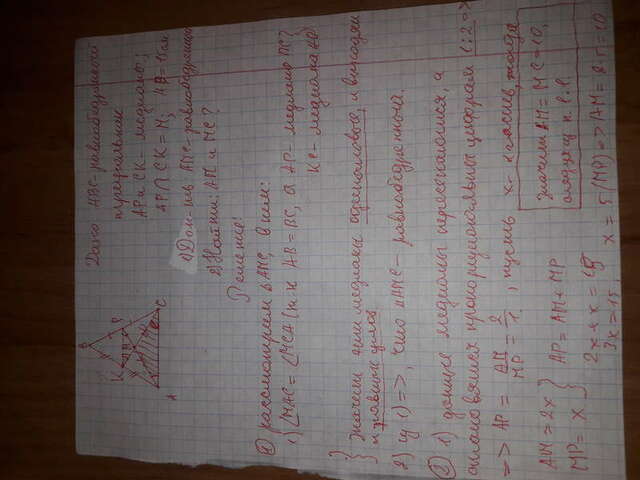 Дано: ABC - равнобедренного
треугольник
AP и CK - медианы;
AP ∩ CK = M, AP = 15 см
1) Док-ть AMC - равнобедренный
2) Найти: AM и MC?
B
K
P
M
A
C
Решение:
① рассмотрим Δ AMC, в нем:
1) ∠MAC = ∠MCA (т.к AB = BC, а AP - медиана BC?
KC - медиана AB)
} Значит эти медианы одинаковые, и выходят
из равных углов
2) из 1) =>, что ΔAMC - равнобедренная.
② 1) данные медианы пересекаются, а
пропорциональны цифрам 1:2 =>
=> AP = AM/MP = 2/1, пусть x - 1 часть, тогда
AM = 2x
MP = x } AP = AM + MP
2x + x = 15
3x = 15, x = 5 (MP) => AM = 2·5 = 10
Значит AM = MC = 10,
следует п. 1.